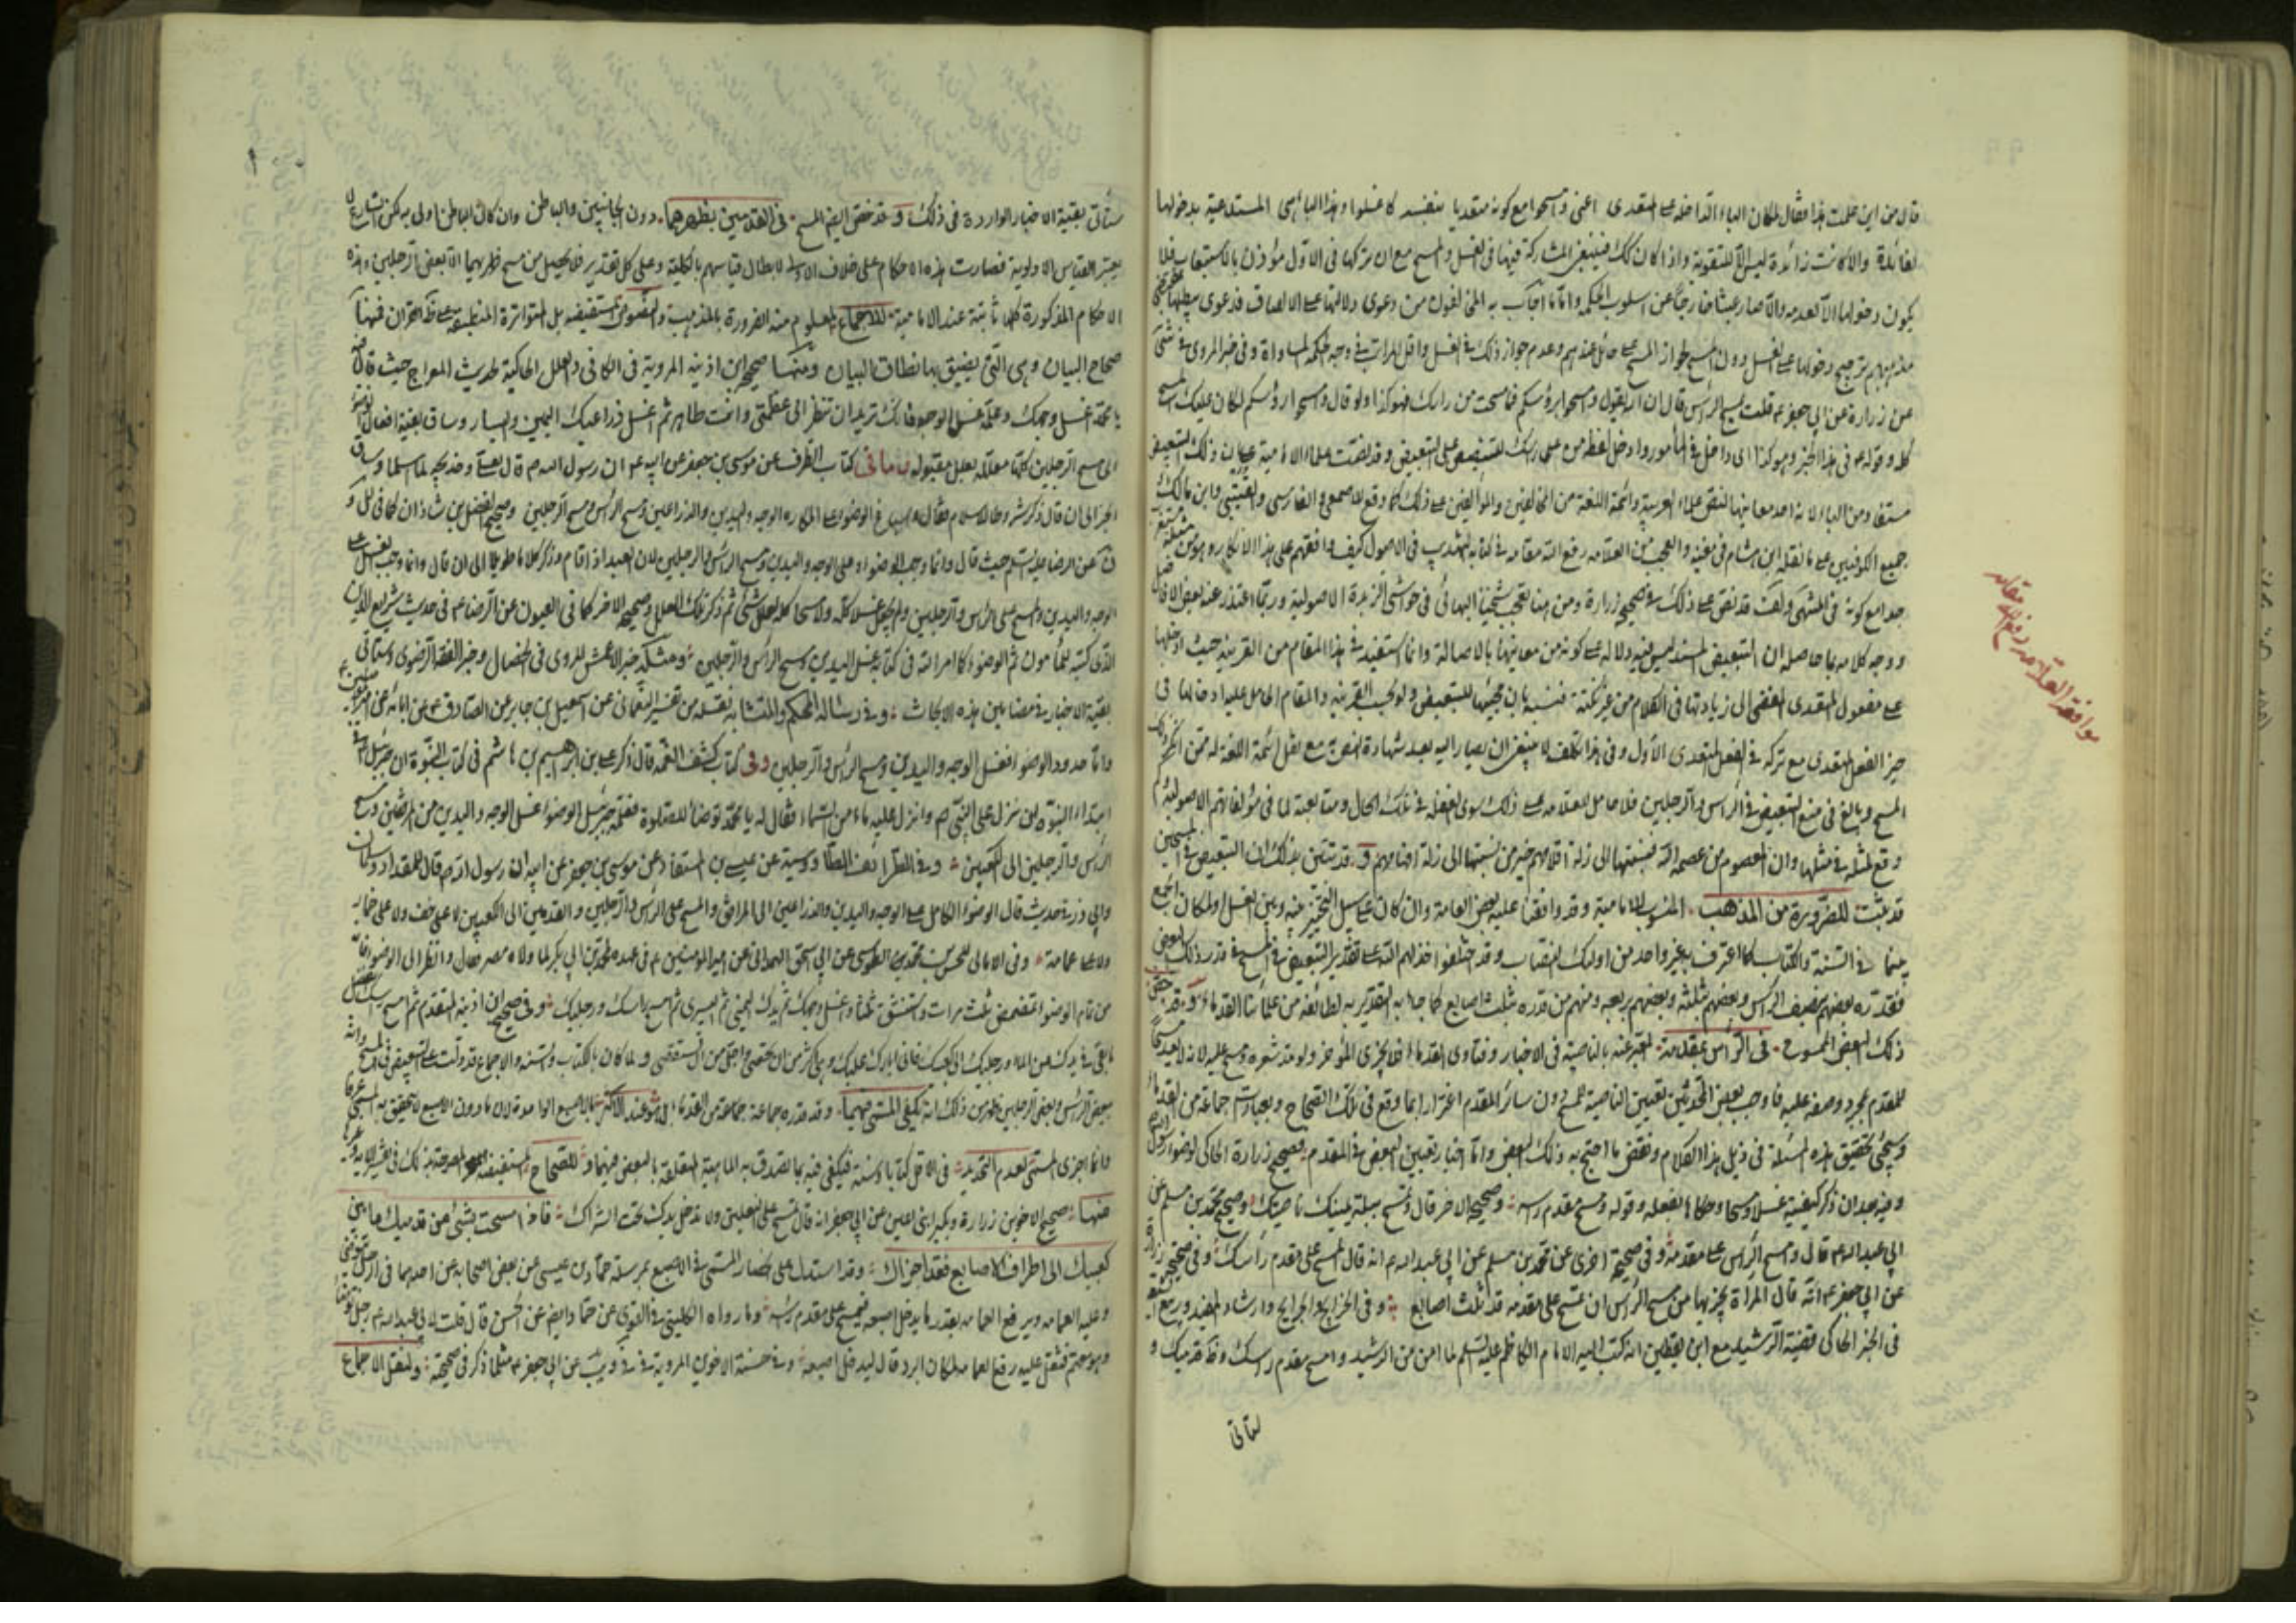 قال من اين علمت هذا فقال لمكان الباء الداخلة على المتعدى اعنى وامسحوا مع كونه متعديا بنفسه كاغسلوا وهذا الباء هى المستدعية بدخولها
لفائدة والا كانت زائدة ليس الا للتقوية واذا كان كك فينبغى المشاركة فيها فى الغسل والمسح مع ان تركها فى الاول مؤذن بالاستيعاب فلا
يكون دخولها الا لعدمه والا صار عبثا خارجا عن اسلوب الحكمة واما ما اجاب به المخالفون من دعوى دلالتها على الالصاق فدعوى يبطلها
مذهبهم ترجيح دخولها على الغسل دون المسح لجواز المسح على حائل عندهم وعدم جواز ذلك فى الغسل واقل المراتب فى وجه الحكمة المساواة وفى خبر المروى فى شى
عن زرارة عن ابى جعفر ع قلت مسح الراس قال ان الله يقول وامسحوا برؤسكم فما مسحت من راسك فهو كذا ولو قال وامسحوا رؤسكم لكان عليك المسح
كله وقوله ع فى هذا الخبر وهو كذا اى داخل فى المأمور وادخل لفظ من على راسك للتنصيص على التبعيض وقد اتفقت علماء الامامية على ان ذلك التبعيض
مستفاد من الباء لانه احد معانيها لنص علماء العربية وائمة اللغة من المخالفين والمؤالفين على ذلك كما وقع للاصمعى والفارسى والقتيبى وابن مالك
جميع الكوفيين على ما نقله ابن هشام فى مغنيه والعجب من العلامه رفع الله مقامه فى كتابه التهذيب فى الاصول كيف وافقهم على هذا الانكار وهو من
جدا مع كونه فى المنتهى والمخـ قد نص على ذلك فى صحيح زرارة ومن هنا تعجب شيخنا البهائى فى حواشى الزبدة الاصولية وربما اعتذر عنه بعض الافاضل
ووجه كلامه بما حاصله ان التبعيض المستند ليس فيه دلالة على كونه من معانيها بالاصالة وانما استفيد فى هذا المقام من القرينة حيث ادخلها
على مفعول المتعدى المفضى الى زيادتها فى الكلام من غير نكتة
حيز الفعل المتعدى مع تركه فى الفعل المتعدى الاول وفى هذا تكلف لا ينبغى ان يصار اليه بعد شهادة النص به مع نقل ائمة اللغة له
المسح وبالغ فى منع التبعيض فى الراس والرجلين فلا حامل للعلامه على ذلك سوى الغفلة فى تلك الحال ومتابعة لما فى مؤلفاتهم الاصولية
وقع لمثله فى مثلها وان المعصوم من عصمه الله نسبتها الى زلة اقلامهم خير من نسبتها الى زلة افهامهم وقد تبين بذلك ان التبعيض فى المسحين
قد ثبت للضرورة من المذهب المنسوب للامامية وقد وافقنا عليه بعض العامة وان كان على سبيل التخيير بينه وبين الغسل
بينهما فى السنة والكتاب كما اعترف به غير واحد من اولئك النصاب وقد اختلفوا خذلهم الله على تقدير التبعيض فى المسح فى قدر ذلك
فقدره بعضهم بنصف الراس وبعضهم بثلثه وبعضهم بربعه ومنهم من قدره بثلث اصابع كما جاء به التقدير به لطائفة من علمائنا القدماء وقد
ذلك البعض الممسوح فى الراس بمقدمه المعبر عنه بالناصية فى الاخبار وفتاوى القدماء فلا يجزى المؤخر ولو مد شعره ومسح عليه لانه لا يعد
للمقدم بمجرد وصعه عليه فاوجب بعض المحدثين تعيين الناصية للمسح دون سائر المقدم اغترارا بما وقع فى تلك الصحاح وبعبارت جماعة من القدماء
وسيجئ تحقيق هذه المسئلة فى ذيل هذا الكلام ونقض ما احتج به ذلك البعض واما اخبار تعيين البعض فى المقدم فصحيح زرارة الحاكى لوضوء رسول الله
وفيه بعد ان ذكر كيفيته غسلا ومسحا وحكاها بفعله وقوله ومسح مقدم راسه وصحيحه الاخر قال وتمسح ببلة يمينك ناصيتك وصحيح محمد بن مسلم عن
ابى عبد الله ع قال وامسح الراس على مقدمه وفى صحيحة اخرى عن محمد بن مسلم عن ابى عبد الله ع انه قال امسح على مقدم رأسك وفى صحيح زرارة
عن ابى جعفر ع انه قال المراة يجزيها من مسح الراس ان تمسح على مقدمه قدر ثلث اصابع وفى الخرايج والجرايح وارشاد المفيد
فى الخبر الحاكى قضية الرشيد مع ابن يقطين انه كتب اليه الامام الكاظم عليه السلم لما امن من الرشيد وامسح مقدم راسك وظ قدميك و
لتاتى
موافقة العلامه رفع الله مقامه
ستاتى بقية الاخبار الواردة فى ذلك وقد خص ايضا المسح فى القدمين بظهرهما دون الجانبين والباطن وان كان الباطن اولى به لكن الشارع لا
يعتبر القياس الاولوية فصارت هذه الاحكام على خلاف الاولى لابطال قياسهم بالكلية وعلى كل تقدير فلا يحصل من مسح ظهريهما الا بعض الرجلين وهذه
الاحكام المذكورة كلها ثابتة عند الامامية للاجماع المعلوم منه الضرورة بالمذهب والنصوص المستفيضه بل المتواترة المنطبقة على ظ القران فمنها
صحاح البيان وهى التى يضيق بها نطاق البيان ومنها صحيح ابن اذينه المروية فى الكافى والعلل الحاكية لحديث المعراج حيث قال فيه
يا محمد اغسل وجهك وعلمه غسل الوجه فانك تريد ان تنظر الى عظمتى وانت طاهر ثم اغسل ذراعيك اليمين واليسار وساق بقية افعال الوضوء
الى مسح الرجلين كلها معلله بعلل مقبوله وما فى كتاب الطرف عن موسى بن جعفر عن ابيه ع ان رسول الله ص قال لعلى وخديجه لما اسلما وساق
الخبر الى ان قال ذكر شروط الاسلام فقال واسباغ الوضوء على المكاره الوجه واليدين والذراعين ومسح الراس ومسح الرجلين وصحيح الفضل بن شاذان كما فى لل و
ن عن الرضا عليه السلم حيث قال وانما وجب الوضوء على الوجه واليدين ومسح الراس والرجلين لان العبد اذا قام وذكر كلاما طويلا الى ان قال وانما وجب الغسل على
الوجه واليدين والمسح على الراس والرجلين ولم يجعل غسلا كله ولا مسحا كله لعلل شتى ثم ذكر تلك العلل وصحيحه الاخر كما فى العيون عن الرضا ع فى حديث شرايع الدين
الذى كتبه للمأمون ثم الوضوء كما امر الله فى كتابه غسل اليدين ومسح الراس والرجلين ومثله خبر الاعمش المروى فى الخصال وخبر الفقه الرضوى وستاتى
بقية الاخبار فى مضامين هذه الابحاث وفى رسالة المحكم والمتشابه نقله من تفسير النعمانى عن اسمعيل بن جابر عن الصادق ع عن ابائه عن امير المؤمنين ع
واما حدود الوضوء فغسل الوجه واليدين ومسح الراس والرجلين وفى كتاب كشف الغمه قال ذكر على بن ابراهيم بن هاشم فى كتابه
ابتداء النبوة لمن نزل على النبى ص وانزل عليه ماء من السماء فقال له يا محمد توضأ للصلوة فعلمه جبرئيل الوضوء غسل الوجه واليدين من المرفقين ومسح
الراس والرجلين الى الكعبين وفى الطرائف الطاوسية عن عيسى بن المستفاد عن موسى بن جعفر عن ابيه ان رسول الله ص قال للمقداد وسلمان
وابى ذر فى حديث قال الوضوء الكامل على الوجه واليدين والذراعين الى المرافق والمسح على الراس والرجلين والقدمين الى الكعبين لا على خف ولا على خمار
ولا على عمامة وفى الامالى للحسن بن محمد بن الطوسى عن ابى اسحق الهمدانى عن امير المؤمنين ع فى عهده لمحمد بن ابى بكر لما ولاه مصر فقال وانظر الى الوضوء فانه
من تمام الوضوء المتمضمض ثلث مرات واستنشق ثلثا واغسل وجهك ثم يدك اليمنى ثم اليسرى ثم امسح راسك ورجليك وفى صحيح ابن اذينه المتقدم ثم امسح راسك بفضل
ما بقى فى يدك من الماء ورجليك الى كعبيك فانى ابارك عليك وهى اكثر من ان تحصى واجل من ان تستقصى ولما كان الكتاب والسنه والاجماع قد دلت على التبعيض فى المسح وانه
ببعض الراس وبعض الرجلين لزم من ذلك انه يكفى المسمى فيهما وقد قدره جماعة من القدماء عند الاكثر بالاصبع الواحدة لان ما دون الاصبع لا يتحقق به المسمى عرفا
وانما اجزى المسمى لعدم التحديد فى الاقل كتابا وسنة فيكفى فيه ما تصدق به الماهية المتعلقة بالبعض فيهما و للصحاح المستفيضه
منها صحيح الاخوين زرارة وبكير ابنى اعين عن ابى جعفر انه قال تمسح على النعلين ولا تدخل يدك تحت الشراك فاذا مسحت بشئ من قدميك ما بين
كعبيك الى اطراف الاصابع فقد اجزاك وقد استدل على انحصار المسمى فى الاصبع بمرسلة حماد بن عيسى عن بعض اصحابه عن احدهما فى الرجل يتوضى
وعليه العمامه ويرفع العمامه بقدر ما يدخل اصبعه فيمسح على مقدم راسه وما رواه الكلينى فى القوى عن حماد ايضا عن الحسن قال قلت لابى عبد الله ع رجل توضأ
وهو معتم فثقل عليه رفع العمامه لمكان البرد قال ليدخل اصبعه وفى حسنة الاخوين المروية فى فى ويب عن ابى جعفر ع مثل ما ذكر فى صحيحته ولنقل الاجماع